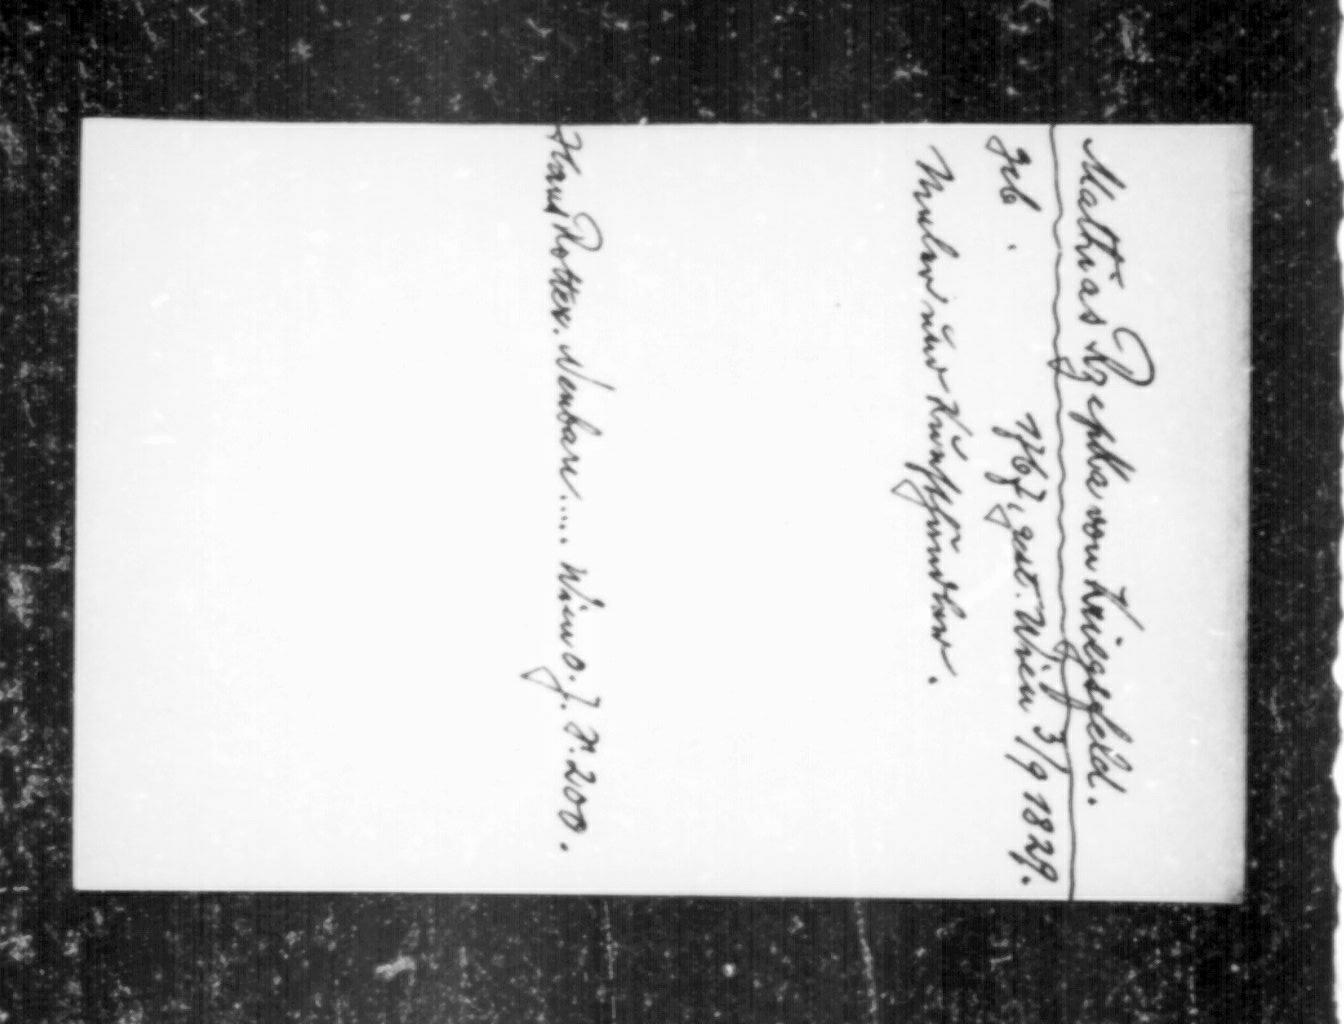 Mathias Rzepka von Kriegsfeld.
geb. gest. Wien 3/9 1829.
Maler und Kunsthändler.
Hans Rotter. Neubau..... Wien o. J. S. 200.